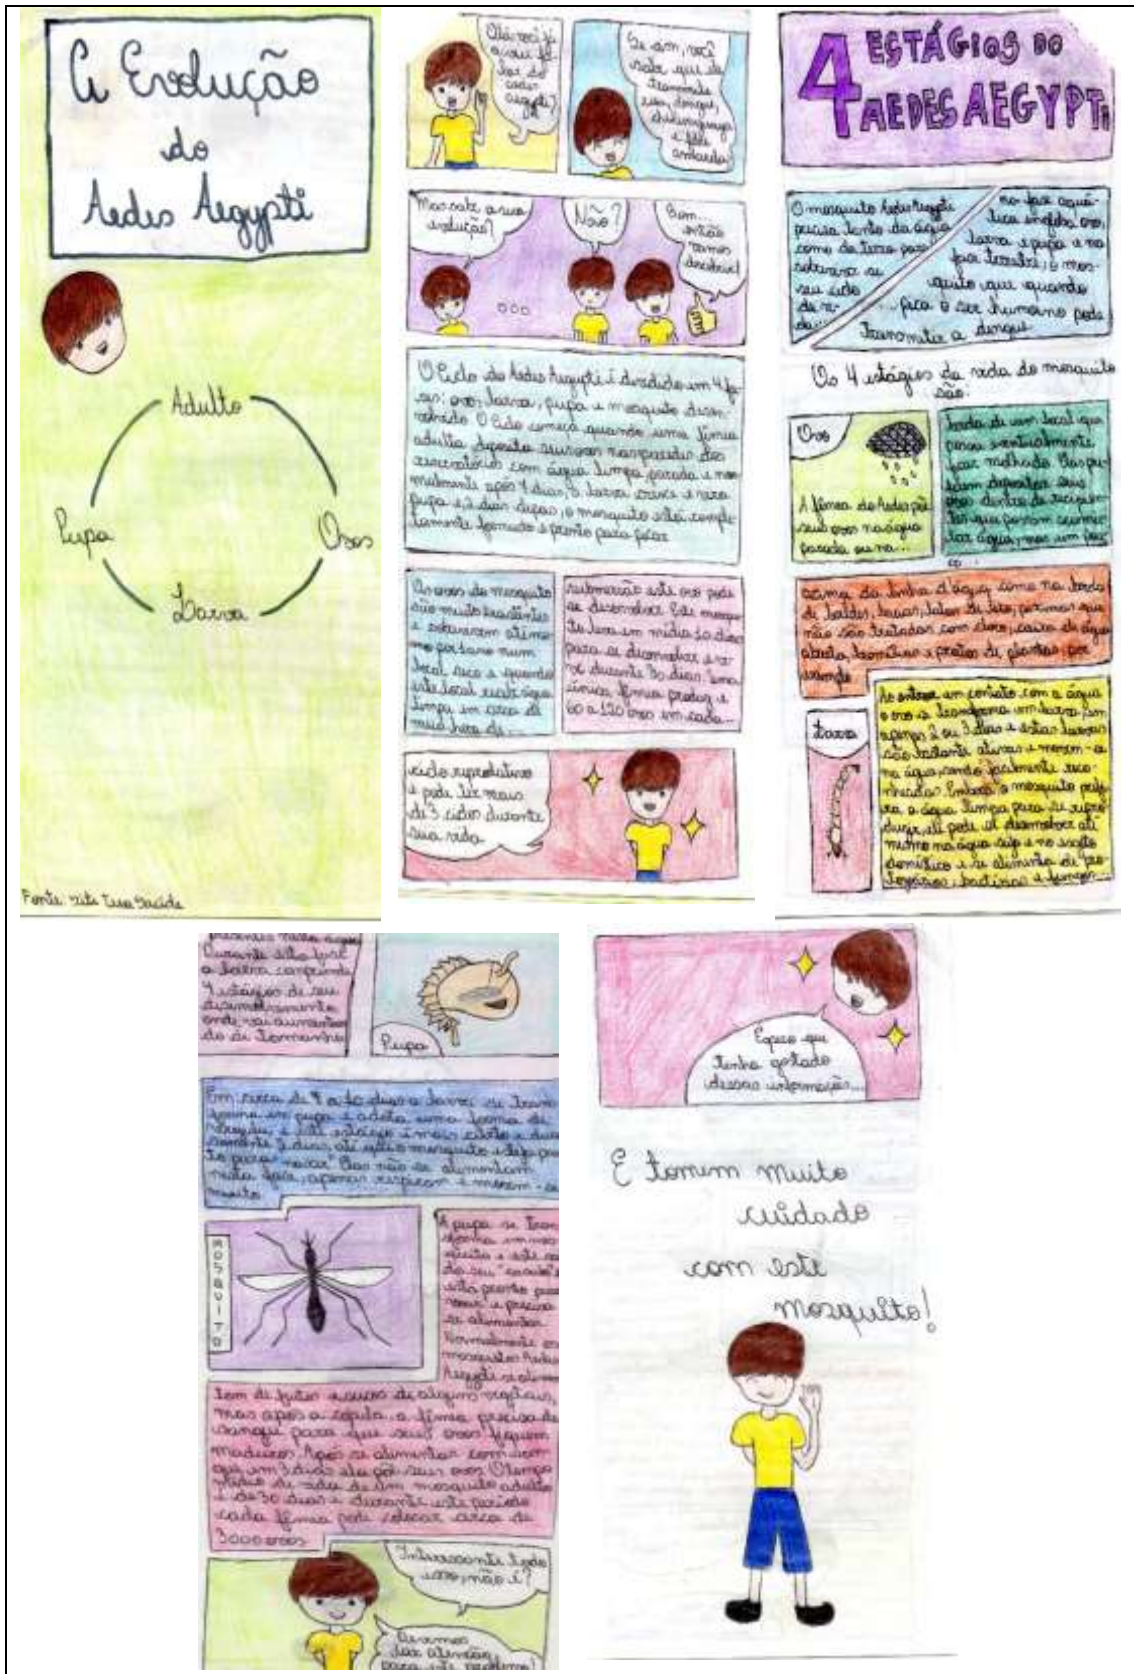 A Evolução
do
Aedes Aegypti
Adulto
Pupa
Ovos
Larva
Fonte: site Tua Saúde
Olá você já
ouviu fa-
lar do
aedes
aegypti?
Se sim, você
sabe que ele
transmite
zica, dengue,
chikungunya
e febre
amarela!
Mas sabe a sua
evolução?
...
Não?
Bom...
então
vamos
descobrir!
O Ciclo do Aedes Aegypti é dividido em 4 fa-
ses: ovo, larva, pupa e mosquito desen-
volvido. O Ciclo começa quando uma fêmea
adulta deposita seus ovos nas paredes dos
reservatórios com água limpa, parada e nor-
malmente após 7 dias, a larva cresce e vira
pupa e 2 dias depois, o mosquito está comple-
tamente formado e pronto para picar
Os ovos do mosquito
são muito resistentes
e sobrevivem até mes-
mo por 1 ano num
local seco e quando
este local recebe água
limpa em cerca de
meia hora de...
submersão este ovo pode
se desenvolver. Este mosqui-
to leva em média 10 dias
para se desenvolver e vi-
ve durante 30 dias. Uma
única fêmea produz e
60 a 120 ovos em cada...
ciclo reprodutivo
e pode ter mais
de 3 ciclos durante
sua vida
4 ESTÁGIOS DO
AEDES AEGYPTI
O mosquito Aedes Aegypti
precisa tanto da água
como da terra para
sobreviver se
seu ciclo
de vi-
da...
na fase aquá-
tica engloba ovo,
larva e pupa e na
fase terrestre, o mos-
quito que quando
...pica o ser humano pode
transmitir a dengue.
Os 4 estágios da vida do mosquito
são:
Ovo
A fêmea do Aedes põe
seus ovos na água
parada ou na...
borda de um local que
possa eventualmente
ficar molhado. Elas po-
dem depositar seus
ovos dentro de recipien-
tes que possam acumu-
lar água, mas um pou-
co
acima da linha d'água, como na borda
de baldes, bacias, latas de lixo, piscinas que
não são tratadas com cloro, caixa de água
aberta, bromélias e pratos de plantas, por
exemplo
Larva
Ao entrar em contato com a água
o ovo se transforma em larva em
apenas 2 ou 3 dias e estas larvas
são bastante ativas e movem-se
na água, sendo facilmente reco-
nhecidas. Embora o mosquito prefi-
ra a água limpa para se repro-
duzir, ele pode se desenvolver até
mesmo na água suja e no esgoto
doméstico e se alimenta de pro-
tozoários, bactérias e fungos...
presentes nesta água
Durante esta fase
a larva compreende
4 estágios de seu
desenvolvimento
onde vai aumentan-
do de tamanho
Pupa
Em cerca de 8 a 10 dias a larva se trans
forma em pupa e adota uma forma de
vírgula, e este estágio é mais curto e dura
somente 3 dias, até que o mosquito esteja pron
to para "nascer" Elas não se alimentam
nesta fase, apenas respiram e movem-se
muito
MOSQUITO
A pupa se trans
forma em mos
quito e este sai
do seu "casulo" e
está pronto para
voar e precisa
se alimentar
Normalmente os
mosquitos Aedes
Aegypti se alimen
tam de frutos e sucos de alguns vegetais,
mas após a cópula, a fêmea precisa de
sangue para que seus ovos fiquem
maduros. Após se alimentar com san
gue em 3 dias ela põe seus ovos O tempo
médio de vida de um mosquito adulto
é de 30 dias e durante este período
cada fêmea pode colocar cerca de
3000 ovos
Interessante tudo
isso, não é?
Devemos
dar atenção
para este problema!
Espero que
tenha gostado
dessas informações...
E tomem muito
cuidado
com este
mosquito!